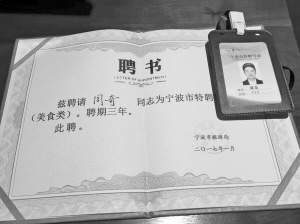 聘书
LETTER OF APPOINTMENT
兹聘请 闫奇 同志为宁波市特聘
（美食类）。聘期三年。
此聘。
宁波市旅游局
二〇一七年一月